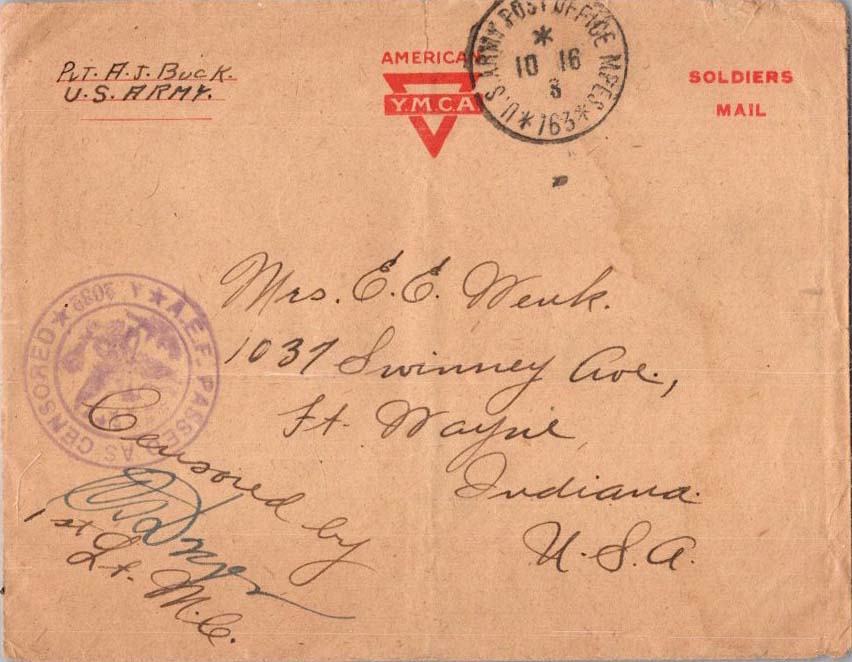 Pvt. A. J. Buck.
U.S. ARMY.
AMERICAN
Y.M.C.A
SOLDIERS
MAIL
U.S. ARMY POST OFFICE M.P.E.S. * 763 *
*
10 16
8
Mrs. E. E. Wenk.
1037 Swinney Ave.,
Ft. Wayne
Indiana.
U.S.A.
A.E.F. PASSED AS CENSORED ★ A.
Censored by
1st Lt. M.C.